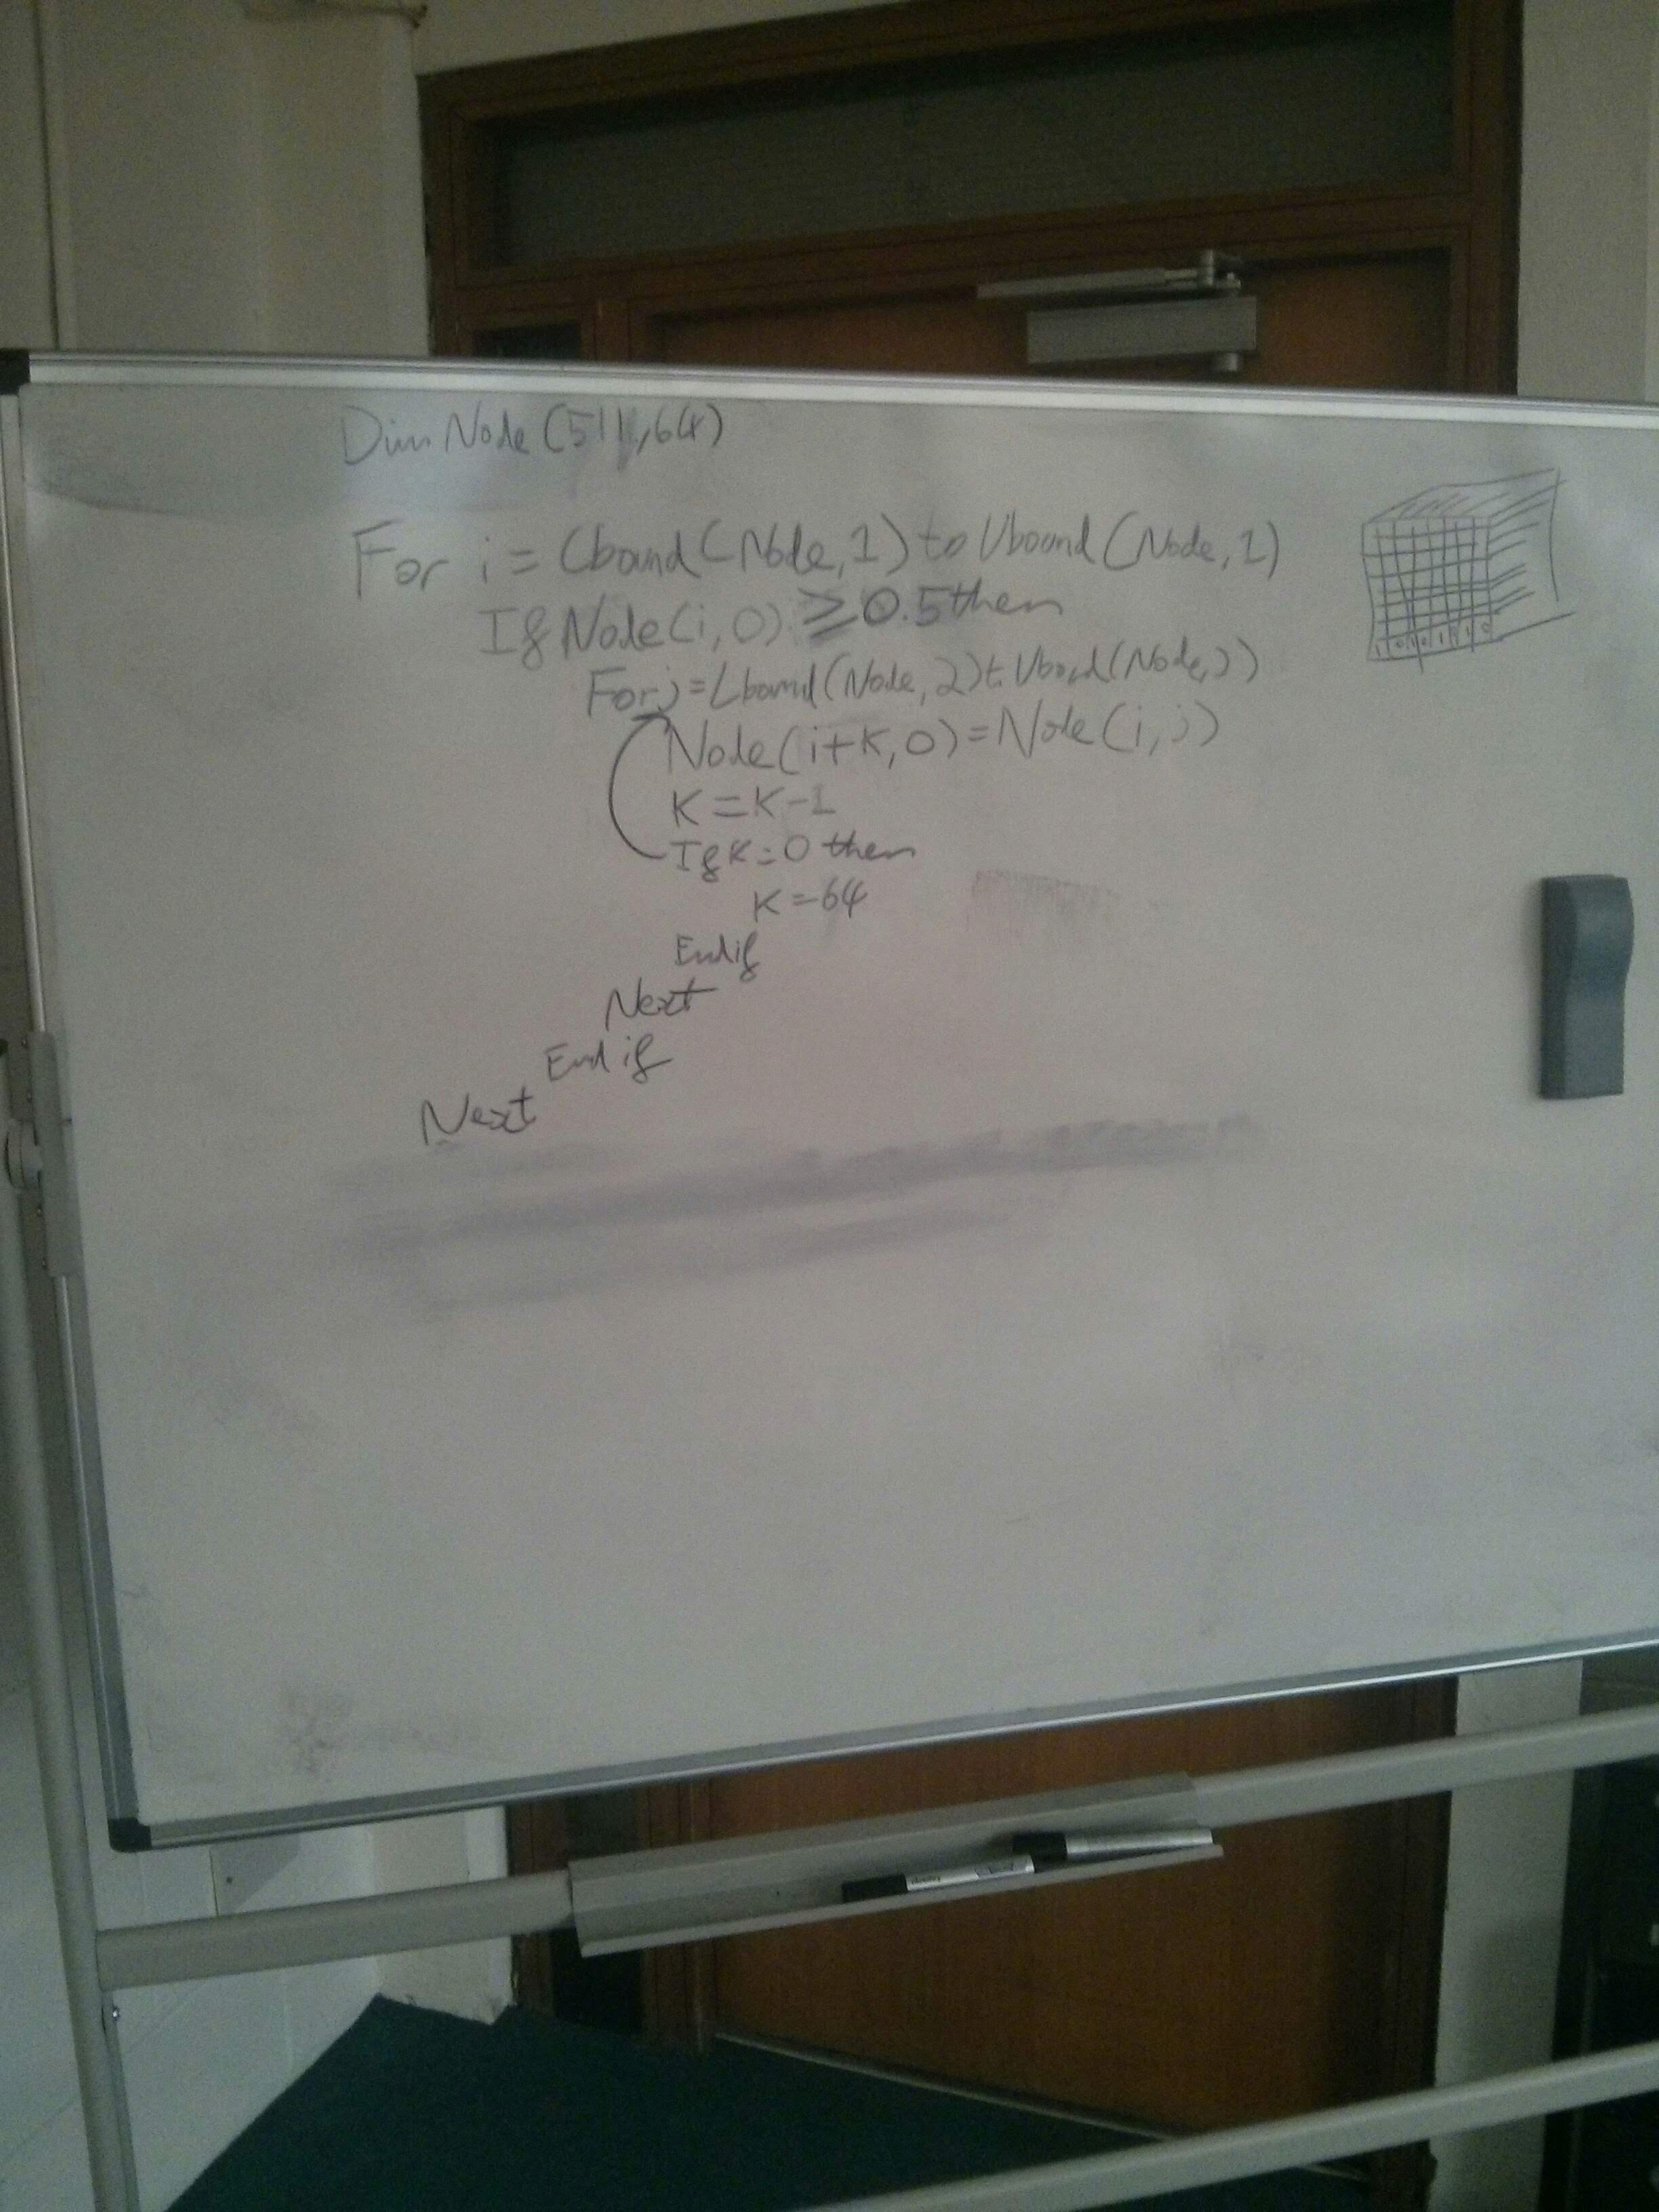 Dim Node (511,64)
For i = Lbound (Node, 1) to Ubound (Node, 1)
If Node (i, 0) ≥ 0.5 then
For j = Lbound (Node, 2) t Ubound (Node, 2)
Node (i+K, 0) = Node (i, j)
K = K-1
If K = 0 then
K = 64
End if
Next
End if
Next